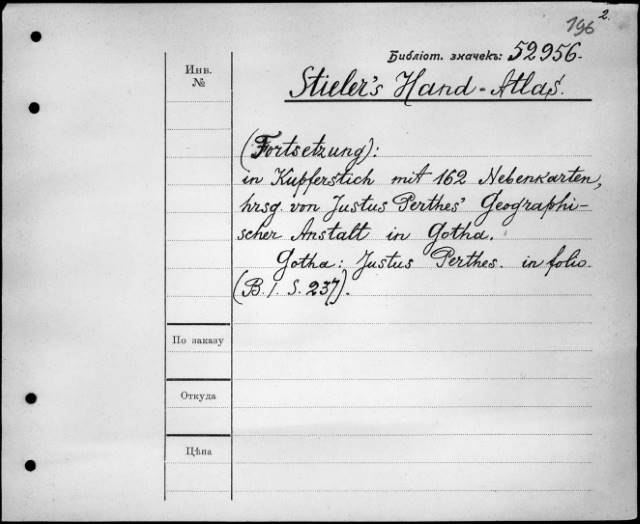 196 2.
Библіот. значекъ: 52956.
Инв.
№
Stieler's Hand-Atlas.
(Fortsetzung):
in Kupferstich mit 162 Nebenkarten,
hrsg. von Justus Perthes' Geographi-
scher Anstalt in Gotha.
Gotha: Justus Perthes. in folio.
(B. I. S. 237).
По заказу
Откуда
Цѣна